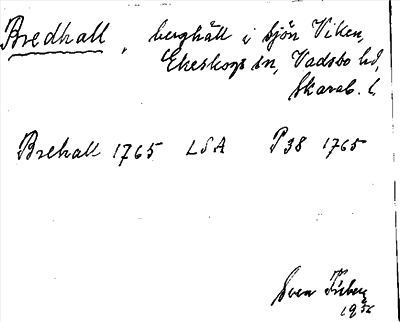 Bredhall, berghäll i sjön Viken,
Ekeskogs sn, Vadsbo hd,
Skarab. l.
Brehall 1765 LSA P38 1765
Sven
19